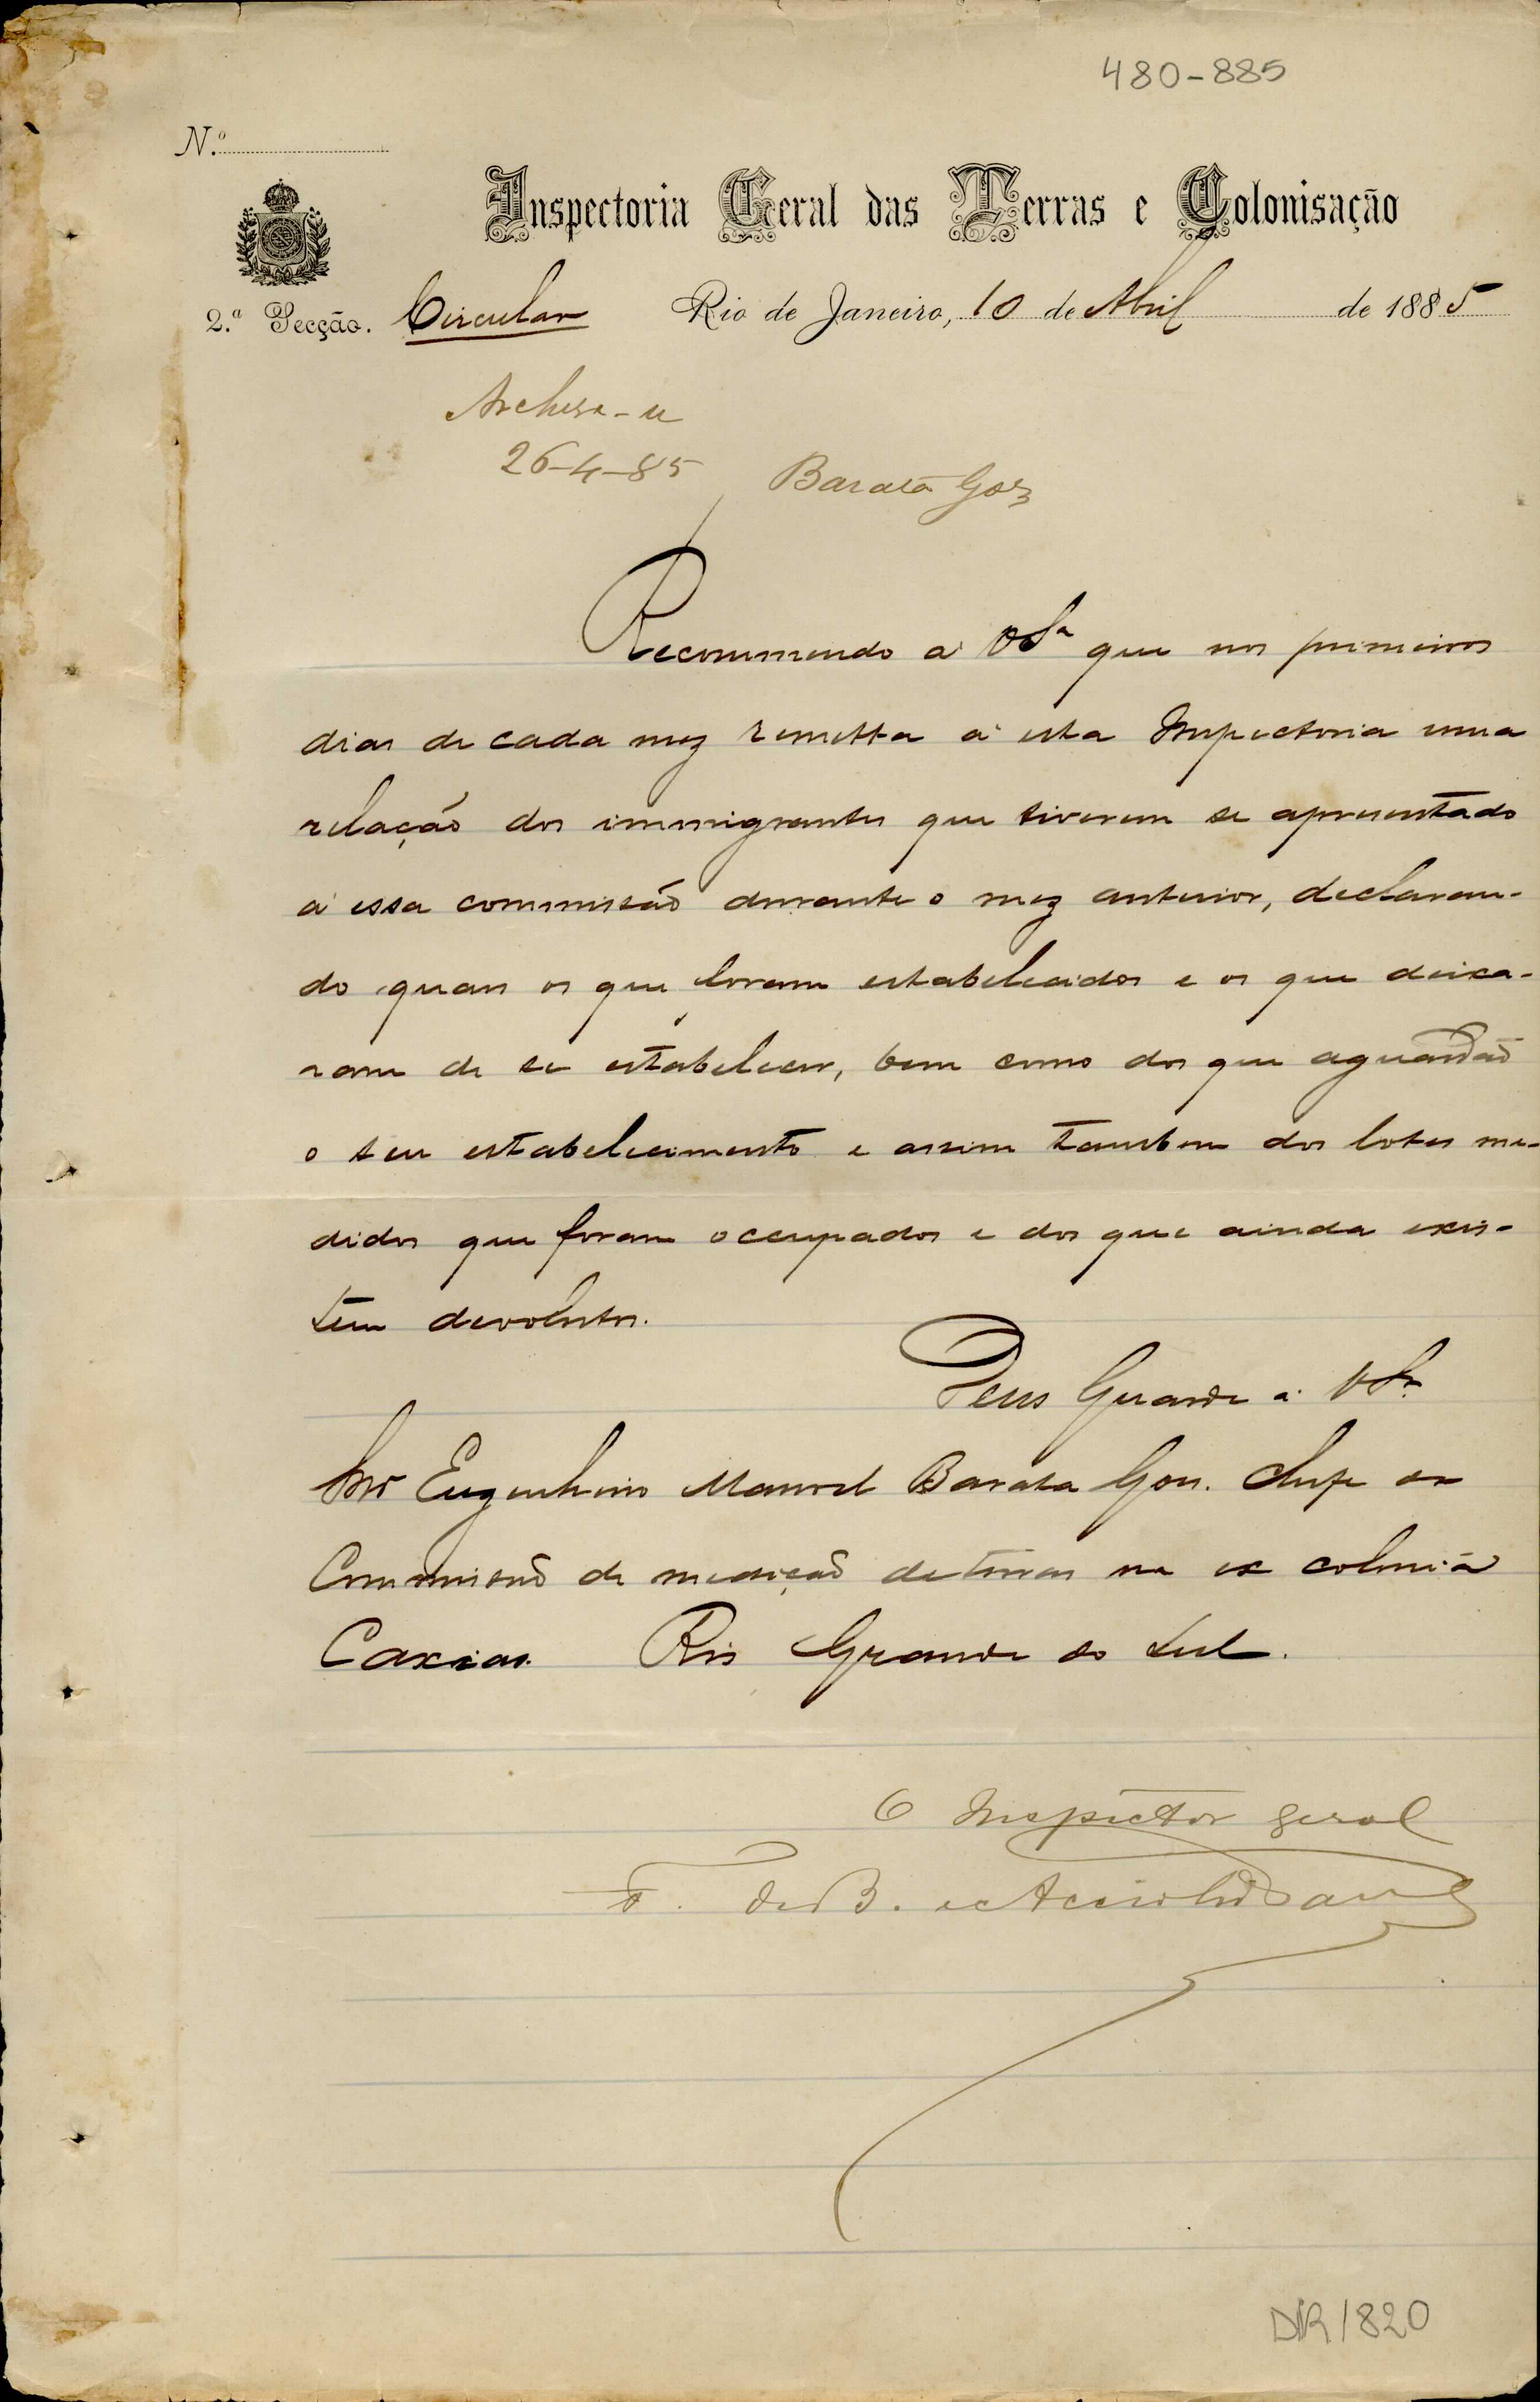 480-885
N.º
Inspectoria Geral das Terras e Colonisação
2.ª Secção. Circular Rio de Janeiro, 10 de Abril de 1885
Archive-se
26-4-85 Barata Góes
Recommendo a VSª que nos primeiros
dias de cada mez remetta a esta Inspectoria uma
relação dos immigrantes que tiverem se apresentado
a essa commissão durante o mez anterior, declaran-
do quaes os que foram estabelecidos e os que deixa-
ram de se estabelecer, bem como dos que aguardão
o seu estabelecimento e assim tambem dos lotes me-
didos que foram occupados e dos que ainda exis-
tem devolutos.
Deus Guarde a VSª
Snr Engenheiro Manoel Barata Góes. Chefe da
Commissão de medição de terras na ex colonia
Caxias. Rio Grande do Sul.
O Inspector geral
F. de B. e Accioli de
DR/820